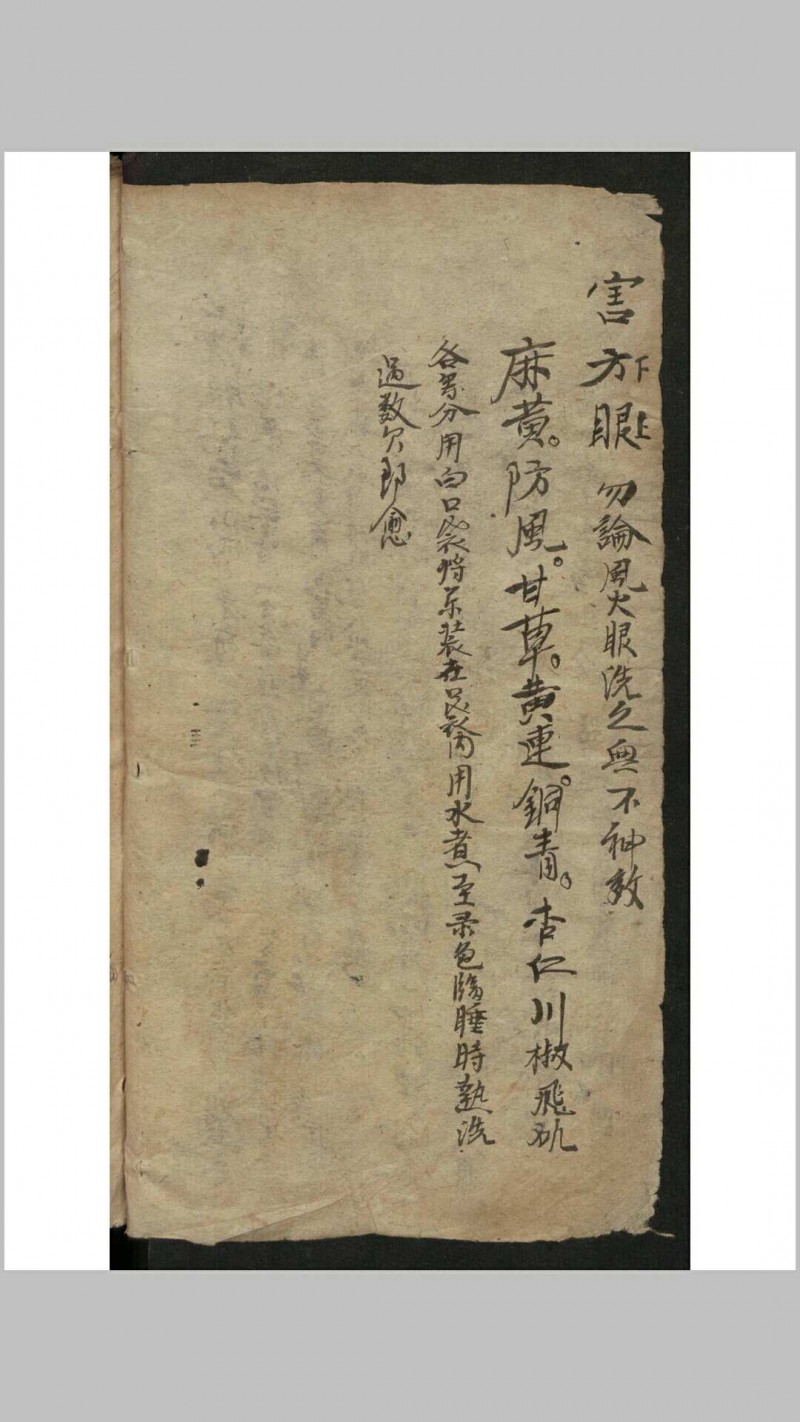 害方下眼上勿論風火眼洗之無不神效
麻黄。防風。甘草。黄連。銅青。杏仁川椒飛矾
各等分用白口袋将藥装在口袋內用水煮至录色臨睡時熱洗
過数欠即愈